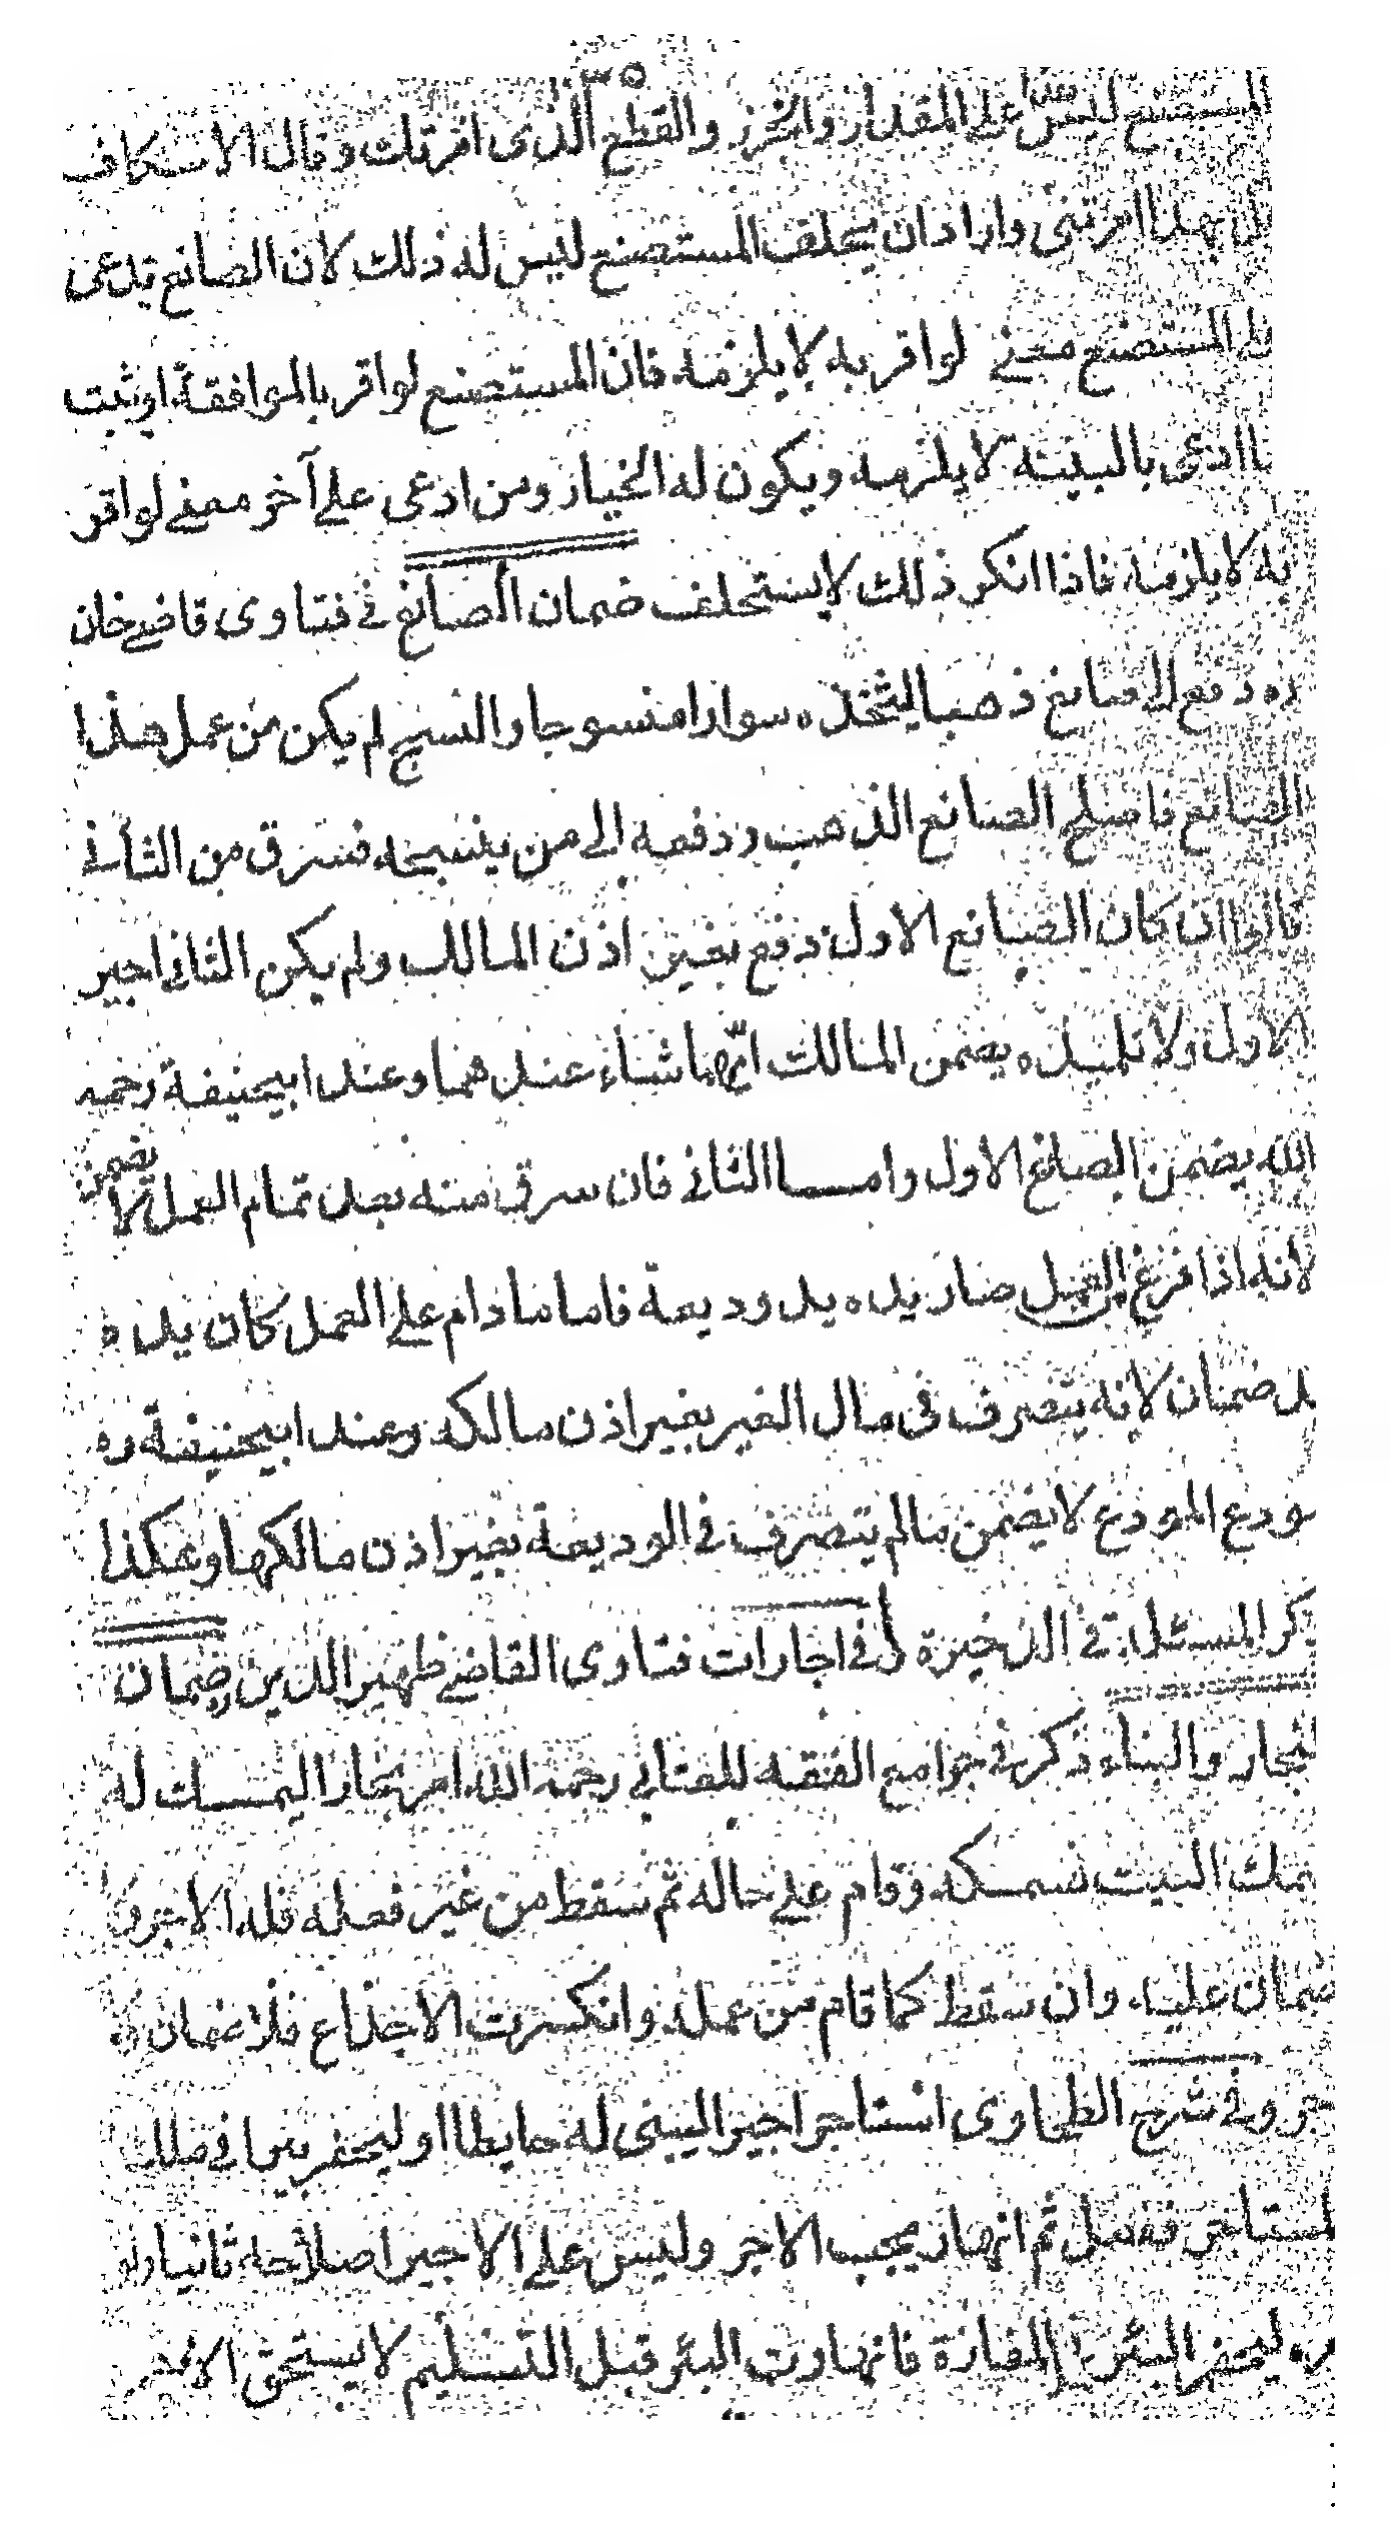 المستصنع ليس هذا على المقدار والخرز والقطع الذى امرتك وقال الاسكاف
بل بهذا امرتنى واراد ان يحلف المستصنع ليس له ذلك لان الصانع يدعى
على المستصنع معنى لو اقر به لا يلزمه فان المستصنع لو اقر بالموافقة او ثبت
ما ادعى بالبينة لا يلزمه ويكون له الخيار ومن ادعى على آخر معنى لو اقر
به لا يلزمه فاذا انكر ذلك لا يستحلف ضمان الصانع فى فتاوى قاضيخان
ره دفع الى صانع ذهبا ليتخذه سوارا منسوجا والنسج لم يكن من عمل هذا
الصانع فاصلح الصانع الذهب ودفعه الى من ينسجه فسرق من الثانى
قالوا ان كان الصانع الاول دفع بغير اذن المالك ولم يكن الثانى اجير
الاول ولا تلميذه يضمن المالك ايهما شاء عندهما وعند ابيحنيفة رحمه
الله يضمن الصانع الاول واما الثانى فان سرق منه بعد تمام العمل لا يضمن
لانه اذا فرغ من العمل صار يده يد وديعة فاما ما دام على العمل كان يده
يد ضمان لانه يتصرف فى مال الغير بغير اذن مالكه وعند ابيحنيفة ره
مودع المودع لا يضمن ما لم يتصرف فى الوديعة بغير اذن مالكها وهكذا
ذكر المسئلة فى الذخيرة وفى اجارات فتاوى القاضى ظهير الدين ضمان
النجار والبناء ذكر فى جوامع الفقه للعتابى رحمه الله امر نجارا ليمسك له
سمك البيت فسمكه وقام على حاله ثم سقط من غير فعله فله الاجر ولا
ضمان عليه وان سقط كما قام من عمله وانكسرت الاجذاع فلا ضمان ولا
اجر وفى شرح الطحاوى استاجر اجيرا ليبنى له حايطا او ليحفر بيرا فى ملك
المستاجر ففعل ثم انهار يجب الاجر وليس على الاجير اصلاحه ثانيا ولو
ليحفر البئر فى المفازة فانهارت البئر قبل التسليم لا يستحق الاجر